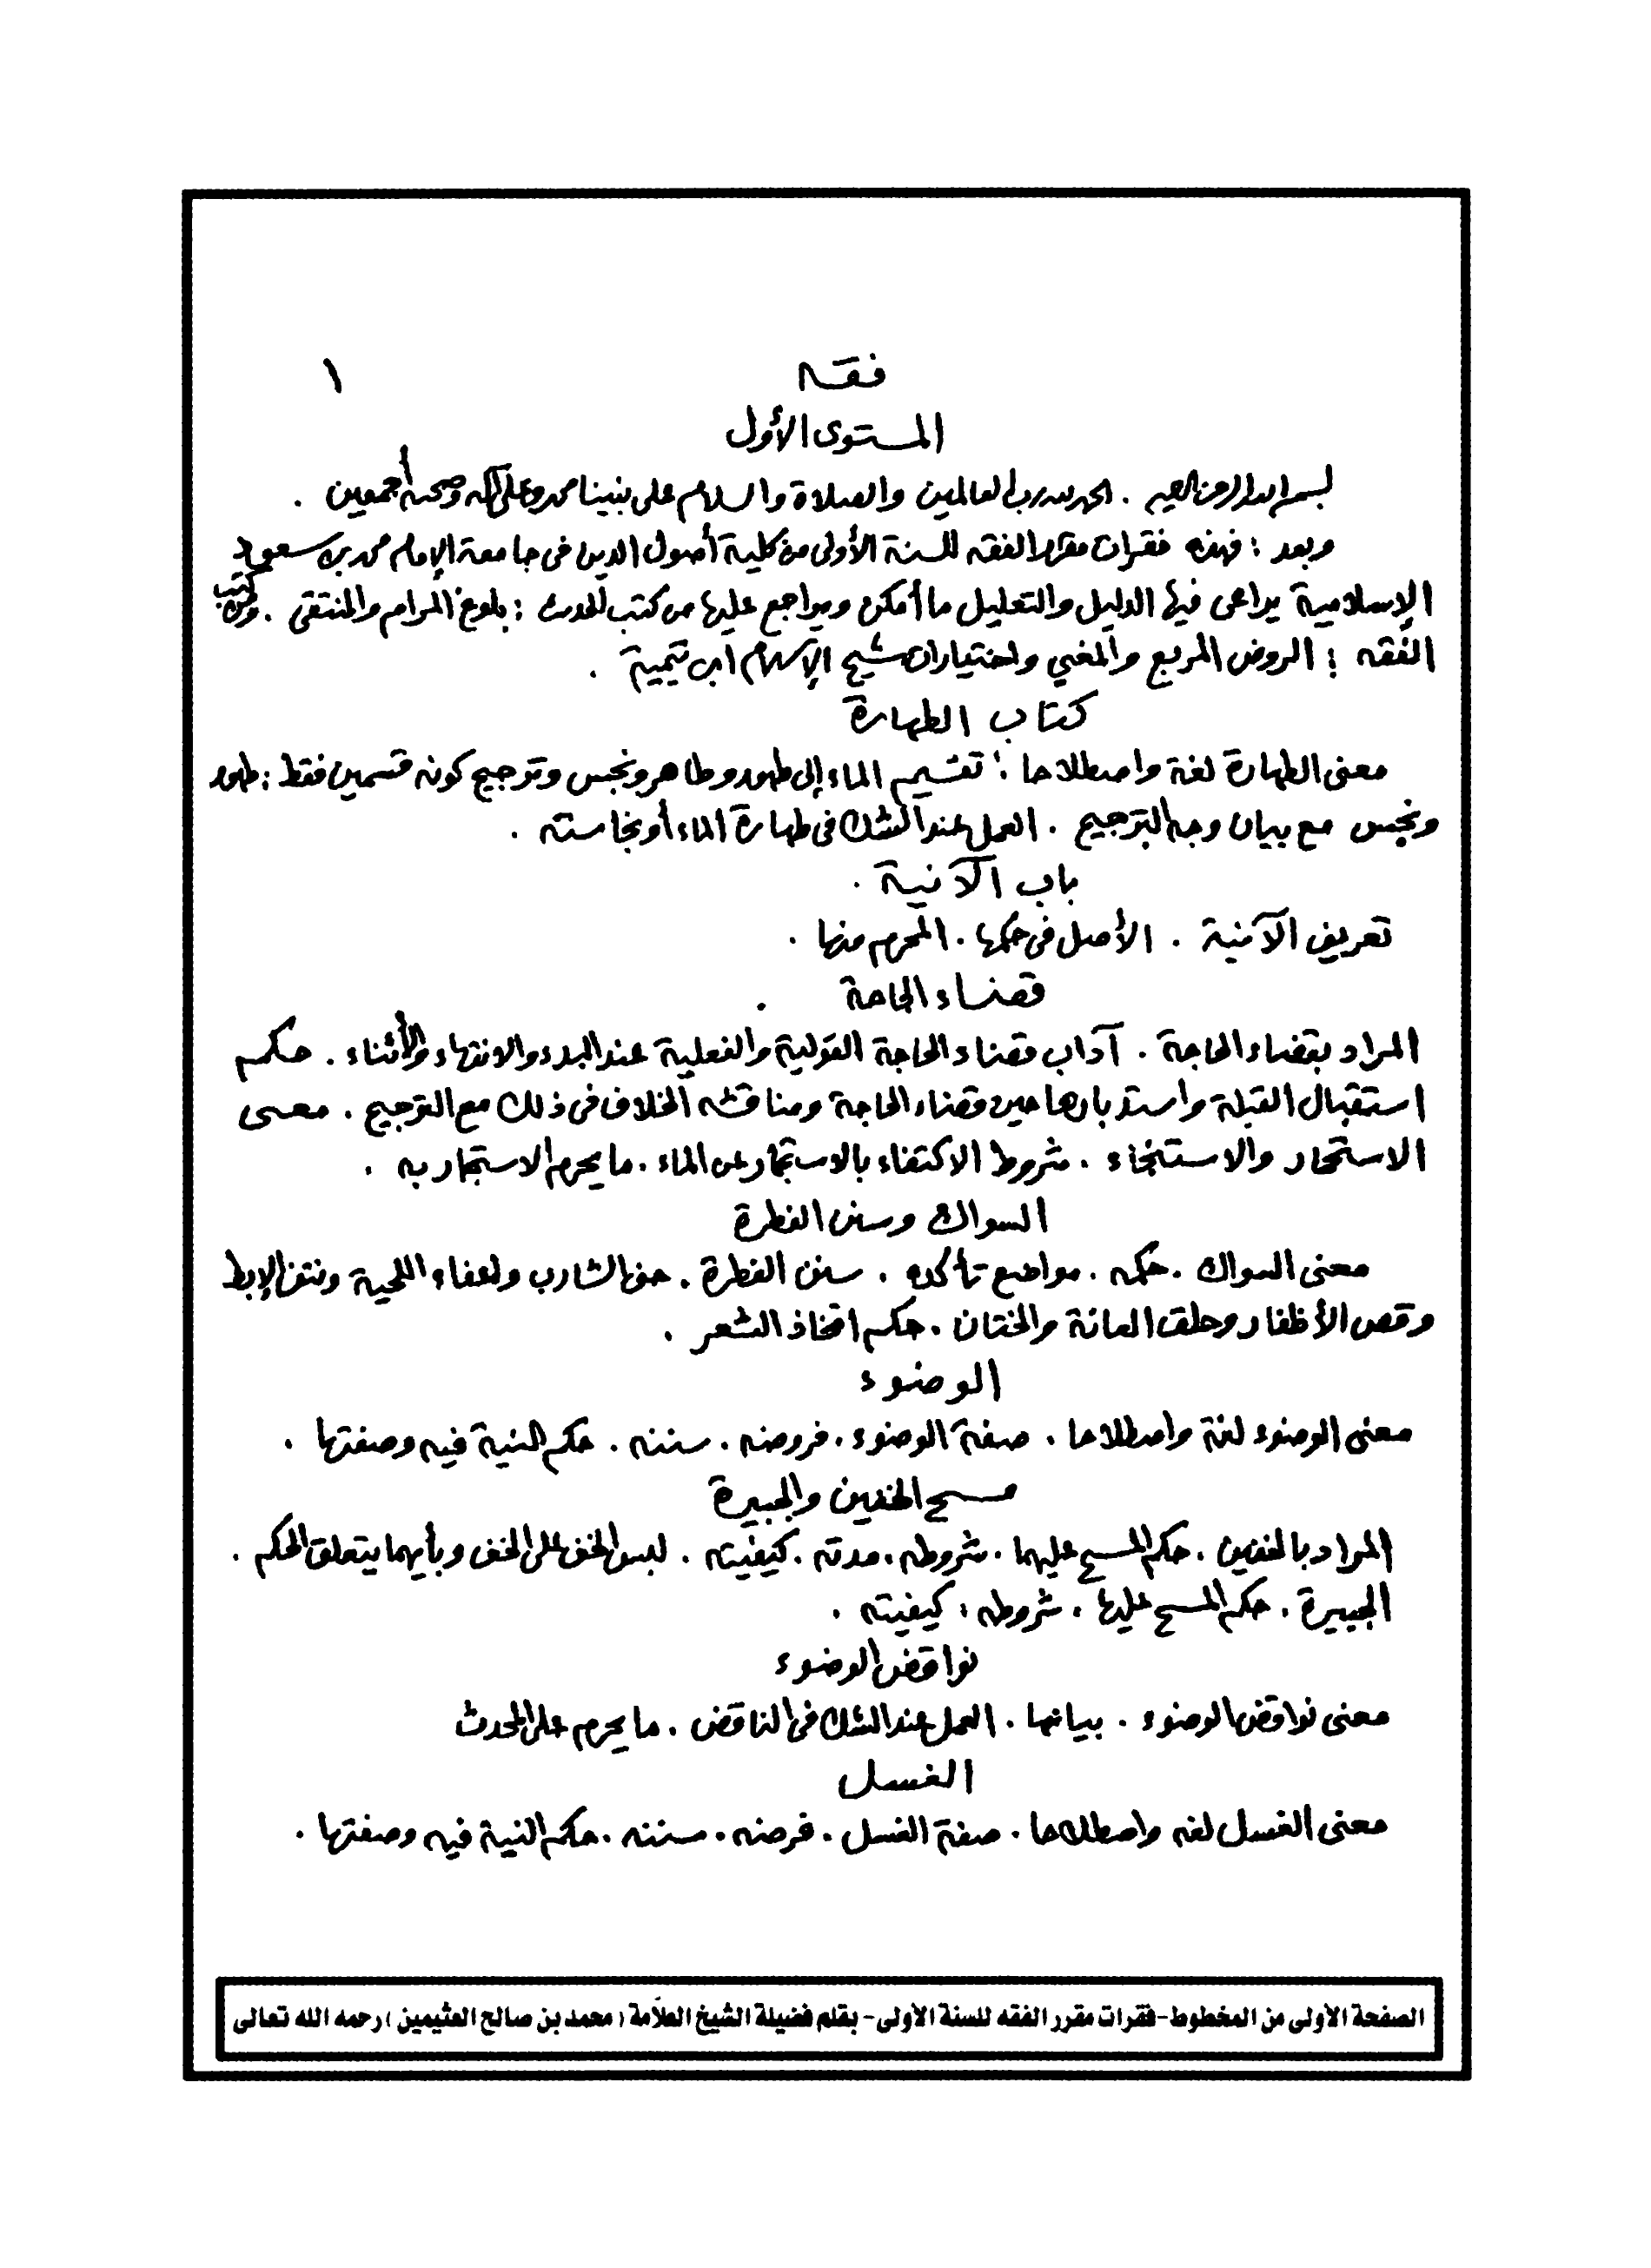 فقه
١
المستوى الأول
بسم الله الرحمن الرحيم . الحمد لله رب العالمين والصلاة والسلام على نبينا محمد وعلى آله وصحبه أجمعين .
وبعد : فهذه فقرات مقرر الفقه للسنة الأولى من كلية أصول الدين في جامعة الإمام محمد بن سعود
الإسلامية يراعى فيها الدليل والتعليل ما أمكن ويراجع عليها من كتب الحديث : بلوغ المرام والمنتقى . ومن كتب
الفقه : الروض المربع والمغني واختيارات شيخ الإسلام ابن تيمية .
كتاب الطهارة
معنى الطهارة لغة واصطلاحا ؛ تقسيم الماء إلى طهور وطاهر ونجس وترجيح كونه قسمين فقط : طهور
ونجس مع بيان وجه الترجيح . العمل عند الشك في طهارة الماء أو نجاسته .
باب الآنية .
تعريف الآنية . الأصل في حكمها . المحرم منها .
قضاء الحاجة .
المراد بقضاء الحاجة . آداب قضاء الحاجة القولية والفعلية عند البدء والانتهاء والأثناء . حكم
استقبال القبلة واستدبارها حين قضاء الحاجة ومناقشة الخلاف في ذلك مع الترجيح . معنى
الاستجمار والاستنجاء . شروط الاكتفاء بالاستجمار عن الماء . ما يحرم الاستجمار به .
السواك وسنن الفطرة
معنى السواك . حكمه . مواضع تأكده . سنن الفطرة . حف الشارب وإعفاء اللحية ونتف الإبط
وقص الأظفار وحلق العانة والختان . حكم اتخاذ الشعر .
الوضوء
معنى الوضوء لغة واصطلاحا . صفة الوضوء . فروضه . سننه . حكم النية فيه وصفتها .
مسح الخفين والجبيرة
المراد بالخفين . حكم المسح عليهما . شروطه . مدته . كيفيته . لبس الخف على الخف وبأيهما يتعلق الحكم .
الجبيرة . حكم المسح عليها . شروطه . كيفيته .
نواقض الوضوء
معنى نواقض الوضوء . بيانها . العمل عند الشك في الناقض . ما يحرم على المحدث
الغسل
معنى الغسل لغه واصطلاحا . صفة الغسل . فرضه . سننه . حكم النية فيه وصفتها .
الصفحة الأولى من المخطوط-فقرات مقرر الفقه للسنة الأولى- بقلم فضيلة الشيخ العلاّمة (محمد بن صالح العثيمين) رحمه الله تعالى